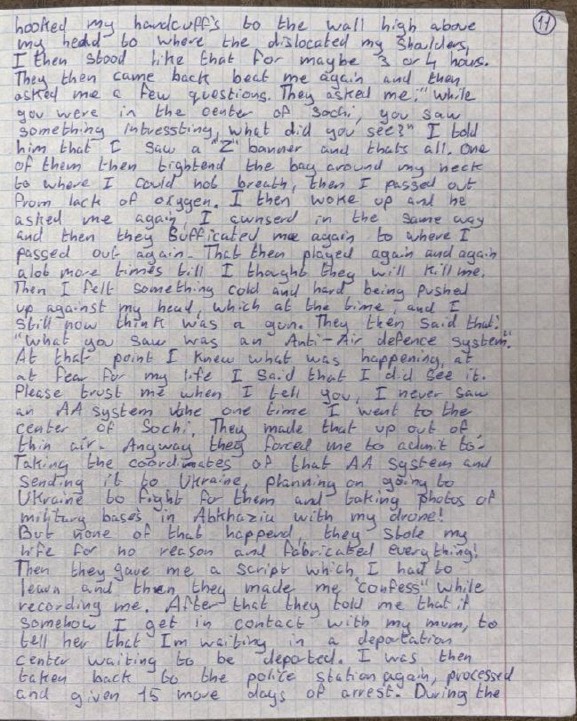 11
hooked my handcuffs to the wall high above
my head to where the dislocated my shoulders,
I then stood like that for maybe 3 or 4 hours.
They then came back beat me again and then
asked me a few questions. They asked me: "while
you were in the center of Sochi, you saw
something intressting, what did you see?" I told
him that I saw a "Z" banner and thats all. One
of them then tightend the bag around my neck
to where I could not breath, then I passed out
from lack of oxygen. I then woke up and he
asked me again, I awnserd in the same way
and then they sufficated me again to where I
passed out again. That then played again and again
alot more times till I thought they will kill me.
Then I felt something cold and hard being pushed
up against my head, which at the time, and I
still now think was a gun. They then said that:
"What you saw was an Anti-Air defence system."
At that point I knew what was happening, at
at fear for my life I said that I did see it.
Please trust me when I tell you, I never saw
an AA system the one time I went to the
center of Sochi. They made that up out of
thin air. Anyway they forced me to admit to:
Taking the coordinates of that AA system and
sending it to Ukraine, planning on going to
Ukraine to fight for them and taking photos of
military bases in Abkhazia with my drone!
But none of that happend, they stole my
life for no reason and fabricated everything!
Then they gave me a script which I had to
learn and then they made me "confess" while
recording me. After that they told me that if
somehow I get in contact with my mum, to
tell her that Im waiting in a deportation
center waiting to be deported. I was then
taken back to the police station again, processed
and given 15 more days of arrest. During the